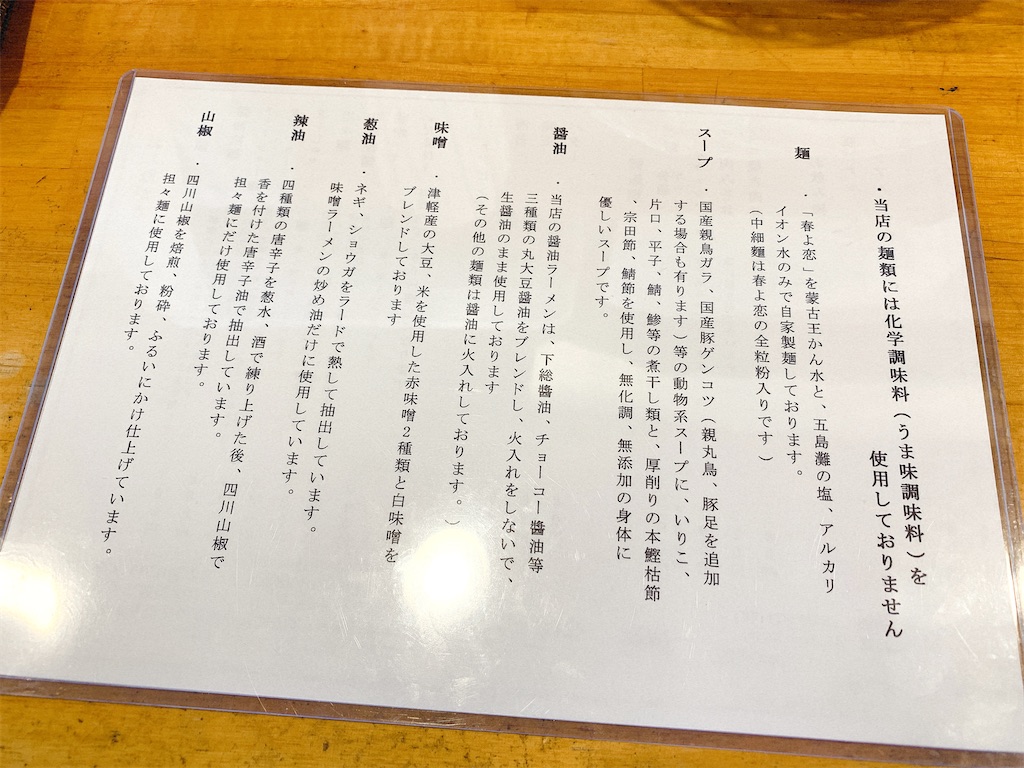 ・当店の麺類には化学調味料（うま味調味料）を
使用しておりません
麺
・「春よ恋」を蒙古王かん水と、五島灘の塩、アルカリ
イオン水のみで自家製麺しております。
（中細麺は春よ恋の全粒粉入りです）
スープ
・国産親鳥ガラ、国産豚ゲンコツ（親丸鳥、豚足を追加
する場合も有ります）等の動物系スープに、いりこ、
片口、平子、鯖、鯵等の煮干し類と、厚削りの本鰹枯節
、宗田節、鯖節を使用し、無化調、無添加の身体に
優しいスープです。
醤油
・当店の醤油ラーメンは、下総醬油、チョーコー醬油等
三種類の丸大豆醤油をブレンドし、火入れをしないで、
生醤油のまま使用しております
（その他の麺類は醤油に火入れしております。）
味噌
・津軽産の大豆、米を使用した赤味噌２種類と白味噌を
ブレンドしております
葱油
・ネギ、ショウガをラードで熱して抽出しています。
味噌ラーメンの炒め油だけに使用しています。
辣油
・四種類の唐辛子を葱水、酒で練り上げた後、四川山椒で
香を付けた唐辛子油で抽出しています。
担々麺にだけ使用しております。
山椒
・四川山椒を焙煎、粉砕、ふるいにかけ仕上げています。
担々麺に使用しております。